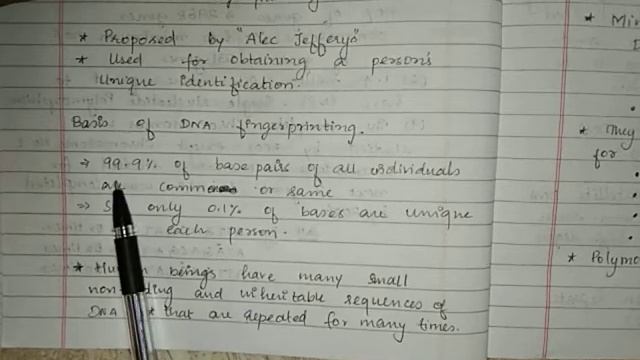 * Proposed by "Alec Jefferys"
* Used for obtaining a person's
Unique identification.
Basis of DNA fingerprinting.
→ 99.9% of base pairs of all individuals
are common or same
⇒ only 0.1% of bases are unique
each person.
* Human beings have many small
and inheritable sequences of
DNA that are repeated for many times.
* Min
* They
for
* Polymo